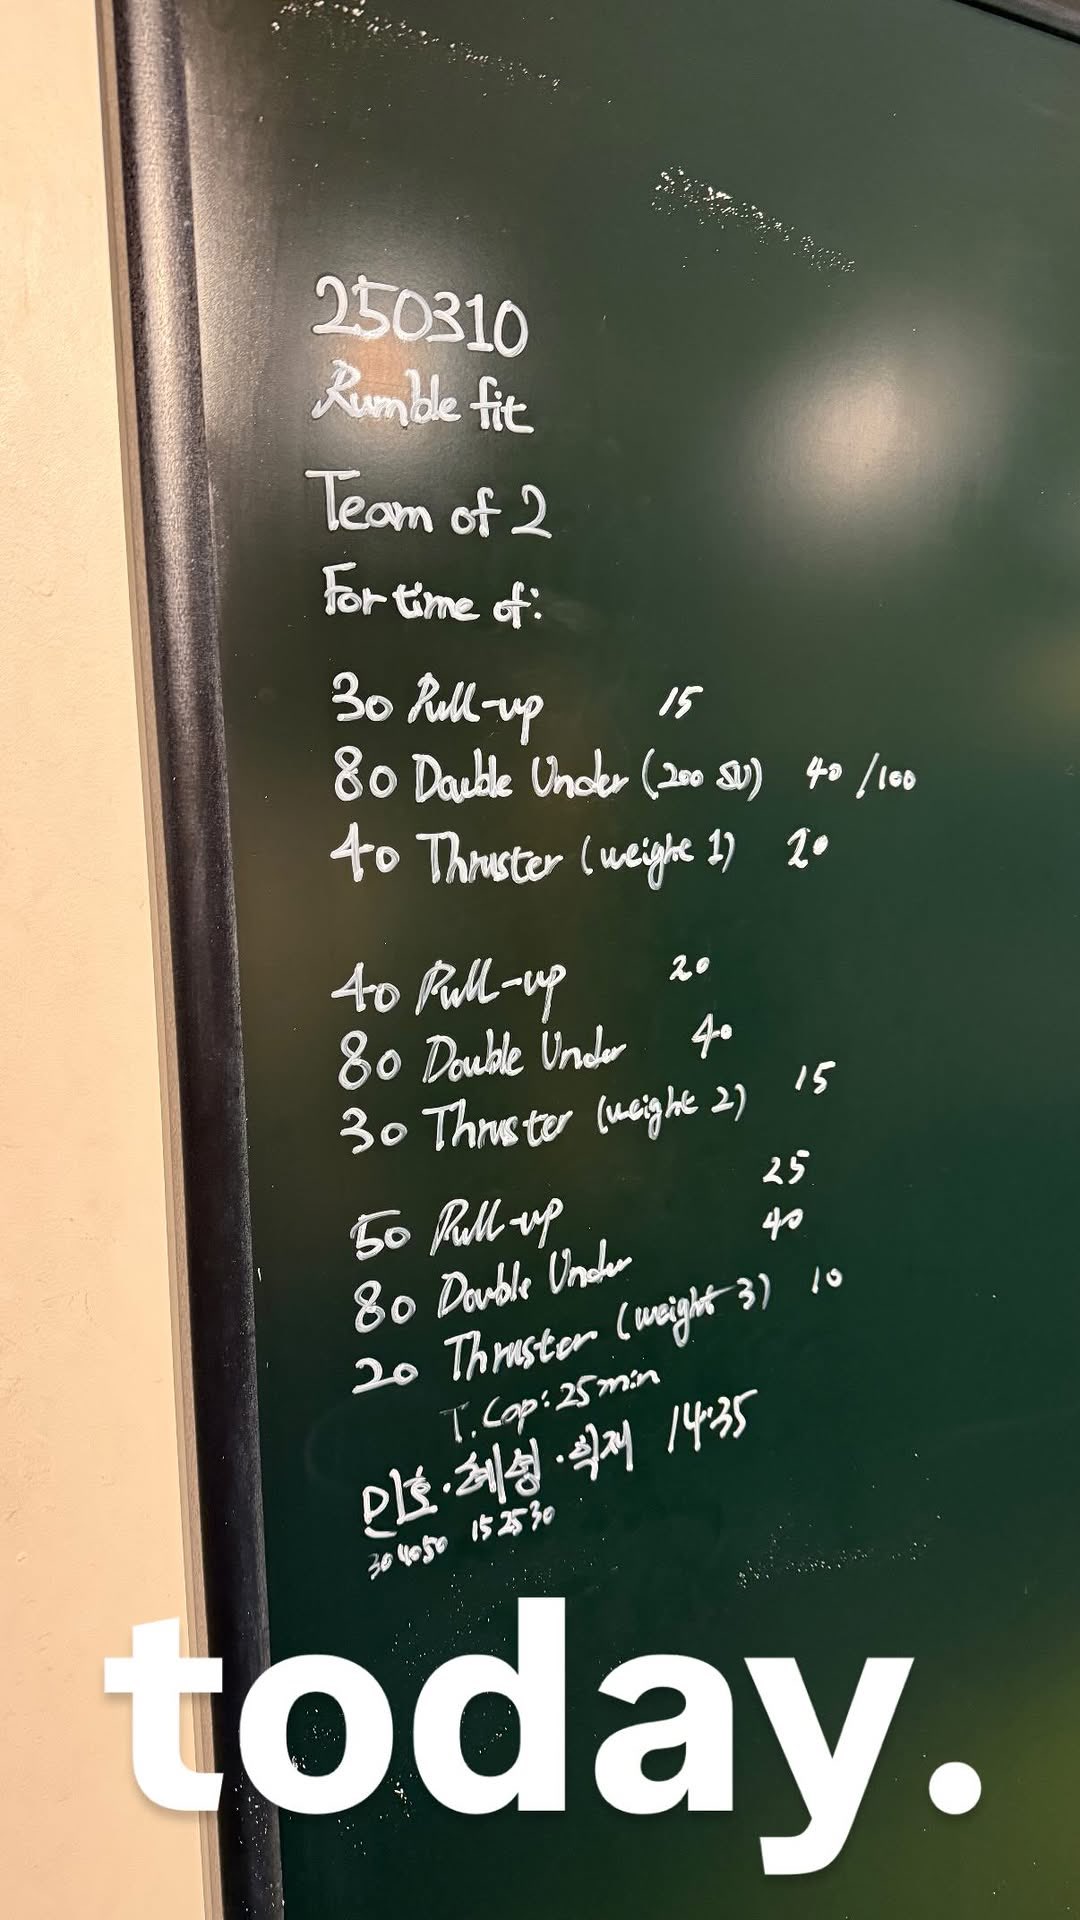 250310
Rumble fit
Team of 2
For time of:
30 Pull-up 15
80 Double Under (200 SU) 40 /100
40 Thruster (weight 1) 20
40 Pull-up 20
80 Double Under 40
30 Thruster (weight 2) 15
50 Pull-up 25
80 Double Under 40
20 Thruster (weight 3) 10
T.Cap: 25min
민호·혜성· 14:35
30 40 50 15 25 30
today.